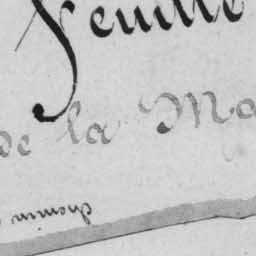 Feuille
de la Ma
chemin